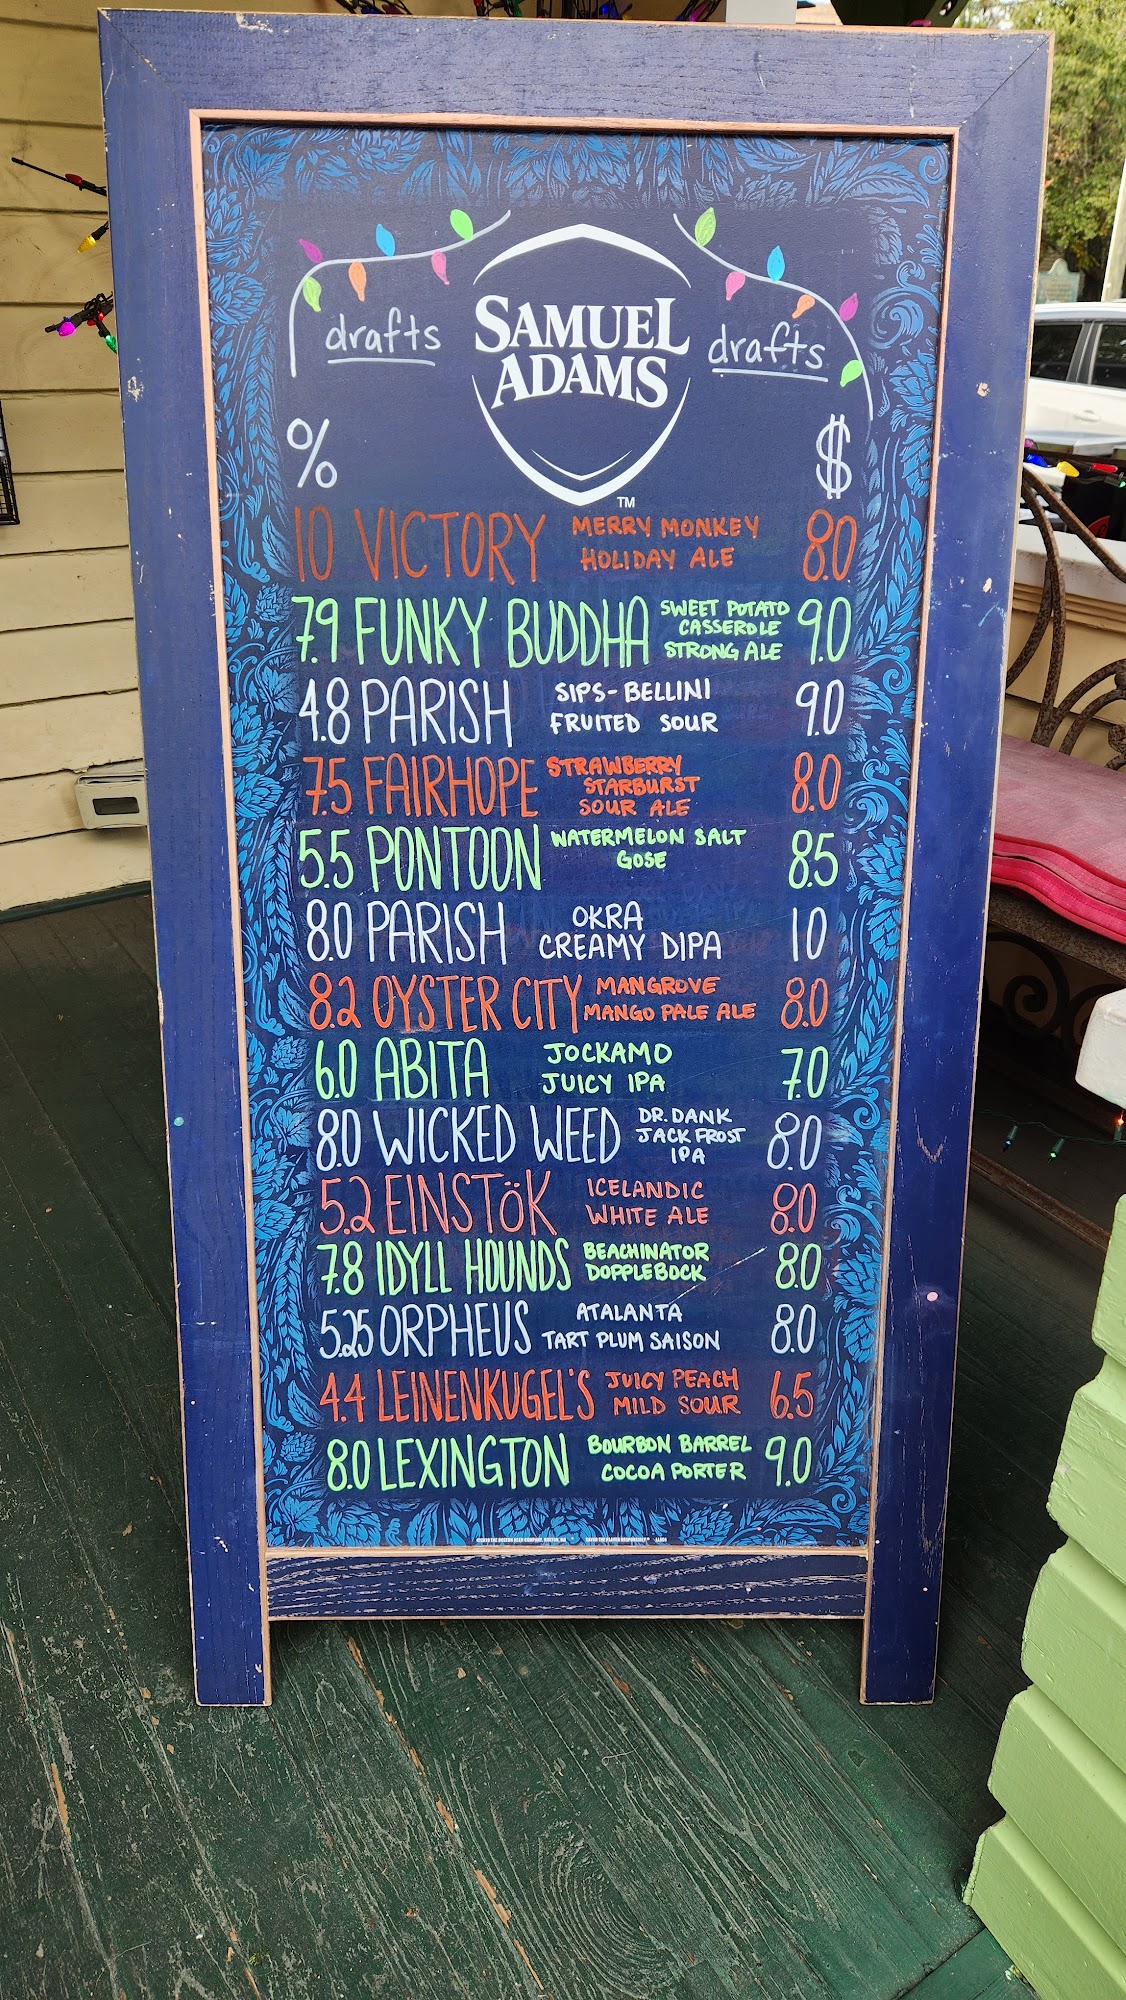 drafts SAMUEL drafts
ADAMS
TM
% $
10 VICTORY MERRY MONKEY 8.0
HOLIDAY ALE
7.9 FUNKY BUDDHA SWEET POTATO 9.0
CASSEROLE
STRONG ALE
4.8 PARISH SIPS-BELLINI 9.0
FRUITED SOUR
7.5 FAIRHOPE STRAWBERRY 8.0
STARBURST
SOUR ALE
5.5 PONTOON WATERMELON SALT 8.5
GOSE
8.0 PARISH OKRA 10
CREAMY DIPA
8.2 OYSTER CITY MANGROVE 8.0
MANGO PALE ALE
6.0 ABITA JOCKAMO 7.0
JUICY IPA
8.0 WICKED WEED DR. DANK 8.0
JACK FROST
IPA
5.2 EINSTÖK ICELANDIC 8.0
WHITE ALE
7.8 IDYLL HOUNDS BEACHINATOR 8.0
DOPPLEBOCK
5.25 ORPHEUS ATALANTA 8.0
TART PLUM SAISON
4.4 LEINENKUGEL'S JUICY PEACH 6.5
MILD SOUR
8.0 LEXINGTON BOURBON BARREL 9.0
COCOA PORTER